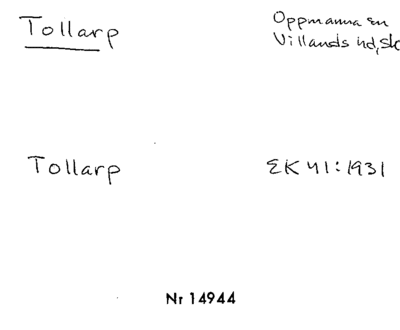 Tollarp
Oppmanna sn
Villands hd, Sk
Tollarp
EK 41:1931
Nr 14944